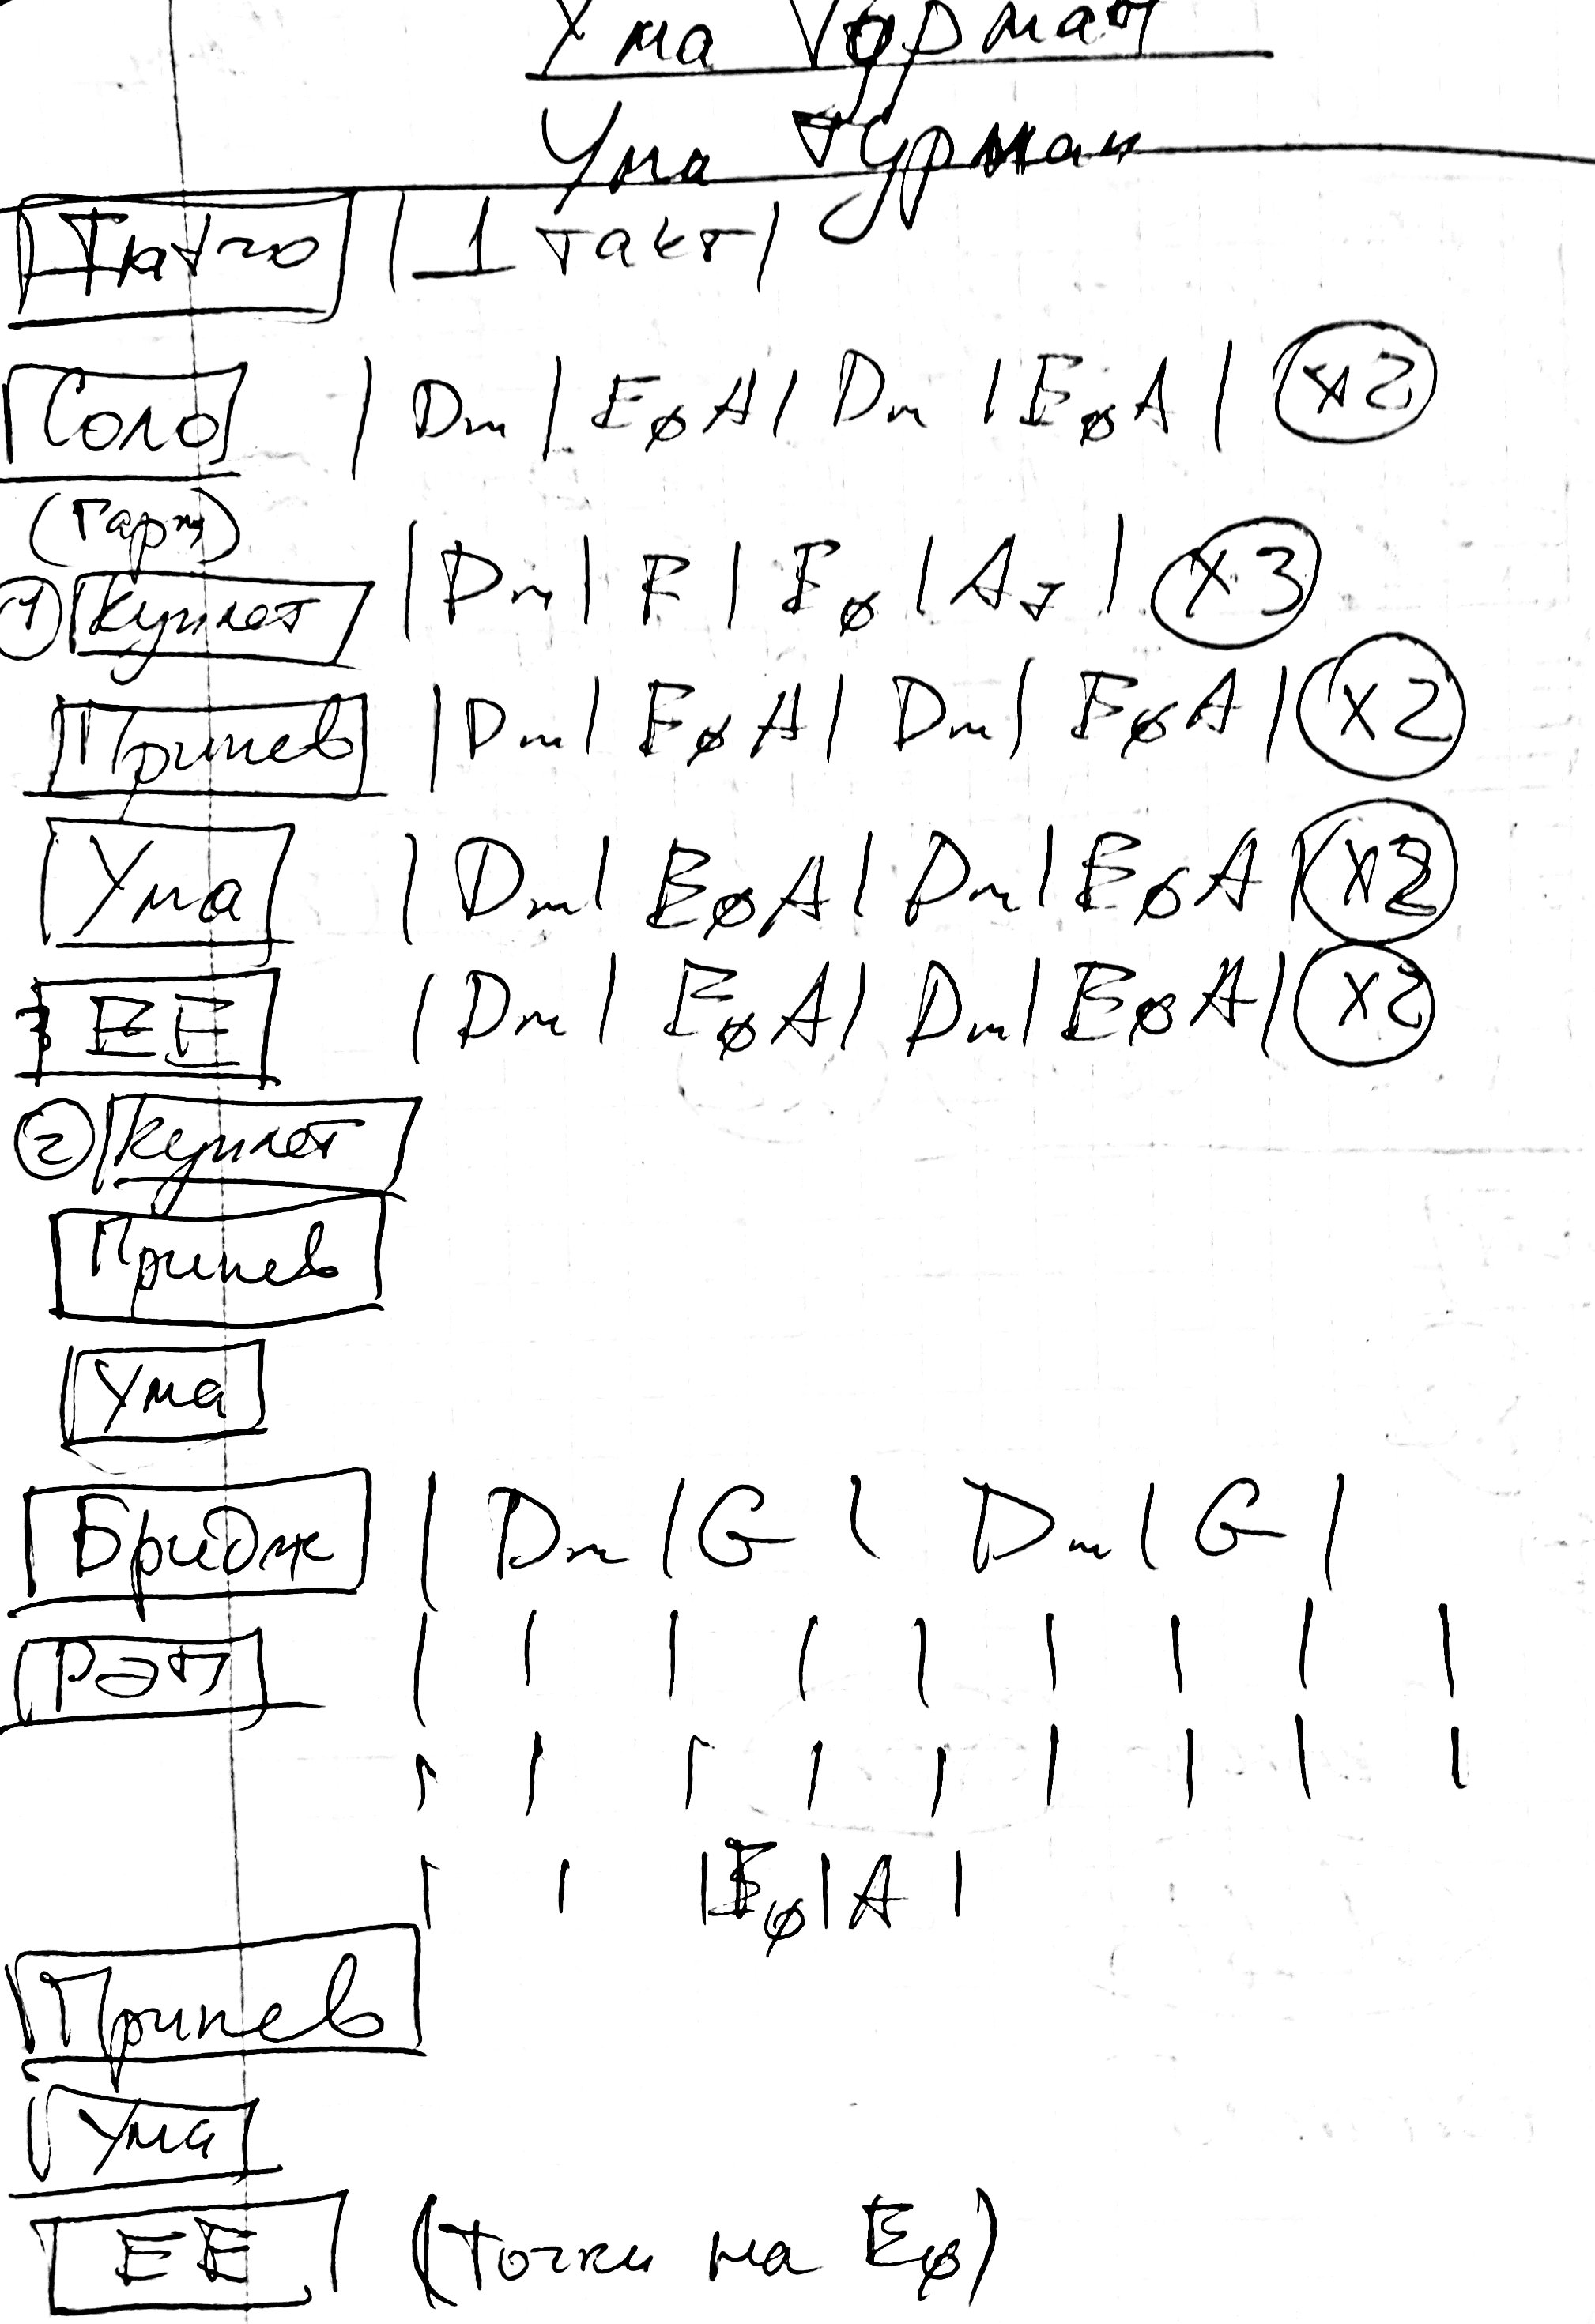 Ума Турман
Ума Турман
Intro | 1 такт |
Соло | Dm | Eø A | Dm | Eø A | x2
(Гарм)
1 Куплет | Dm | F | Eø | A7 | x3
Припев | Dm | Eø A | Dm | Eø A | x2
Ума | Dm | Eø A | Dm | Eø A | x2
EE | Dm | Eø A | Dm | Eø A | x2
2 Куплет
Припев
Ума
Бридж | Dm | G | Dm | G |
Рэп | | | | | | | | |
| | | | | | | | |
| | | Eø | A |
Припев
Ума
EE (точки на Eø)